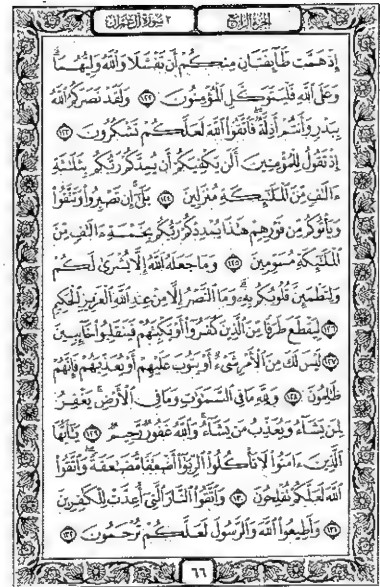 الجزء الرابع
٣ سورة آل عمران
إِذْ هَمَّت طَّآئِفَتَانِ مِنكُمْ أَن تَفْشَلَا وَٱللَّهُ وَلِيُّهُمَاۗ
وَعَلَى ٱللَّهِ فَلْيَتَوَكَّلِ ٱلْمُؤْمِنُونَ ١٢٢ وَلَقَدْ نَصَرَكُمُ ٱللَّهُ
بِبَدْرٍ وَأَنتُمْ أَذِلَّةٌۖ فَٱتَّقُوا۟ ٱللَّهَ لَعَلَّكُمْ تَشْكُرُونَ ١٢٣
إِذْ تَقُولُ لِلْمُؤْمِنِينَ أَلَن يَكْفِيَكُمْ أَن يُمِدَّكُمْ رَبُّكُم بِثَلَٰثَةِ
ءَالَٰفٍ مِّنَ ٱلْمَلَٰٓئِكَةِ مُنزَلِينَ ١٢٤ بَلَىٰٓۚ إِن تَصْبِرُوا۟ وَتَتَّقُوا۟
وَيَأْتُوكُم مِّن فَوْرِهِمْ هَٰذَا يُمْدِدْكُمْ رَبُّكُم بِخَمْسَةِ ءَالَٰفٍ مِّنَ
ٱلْمَلَٰٓئِكَةِ مُسَوِّمِينَ ١٢٥ وَمَا جَعَلَهُ ٱللَّهُ إِلَّا بُشْرَىٰ لَكُمْ
وَلِتَطْمَئِنَّ قُلُوبُكُم بِهِۦۗ وَمَا ٱلنَّصْرُ إِلَّا مِنْ عِندِ ٱللَّهِ ٱلْعَزِيزِ ٱلْحَكِيمِ
١٢٦ لِيَقْطَعَ طَرَفًا مِّنَ ٱلَّذِينَ كَفَرُوٓا۟ أَوْ يَكْبِتَهُمْ فَيَنقَلِبُوا۟ خَآئِبِينَ
١٢٧ لَيْسَ لَكَ مِنَ ٱلْأَمْرِ شَىْءٌ أَوْ يَتُوبَ عَلَيْهِمْ أَوْ يُعَذِّبَهُمْ فَإِنَّهُمْ
ظَٰلِمُونَ ١٢٨ وَلِلَّهِ مَا فِى ٱلسَّمَٰوَٰتِ وَمَا فِى ٱلْأَرْضِۚ يَغْفِرُ
لِمَن يَشَآءُ وَيُعَذِّبُ مَن يَشَآءُۚ وَٱللَّهُ غَفُورٌ رَّحِيمٌ ١٢٩ يَٰٓأَيُّهَا
ٱلَّذِينَ ءَامَنُوا۟ لَا تَأْكُلُوا۟ ٱلرِّبَوٰٓا۟ أَضْعَٰفًا مُّضَٰعَفَةًۖ وَٱتَّقُوا۟
ٱللَّهَ لَعَلَّكُمْ تُفْلِحُونَ ١٣٠ وَٱتَّقُوا۟ ٱلنَّارَ ٱلَّتِىٓ أُعِدَّتْ لِلْكَٰفِرِينَ
١٣١ وَأَطِيعُوا۟ ٱللَّهَ وَٱلرَّسُولَ لَعَلَّكُمْ تُرْحَمُونَ ١٣٢
٦٦